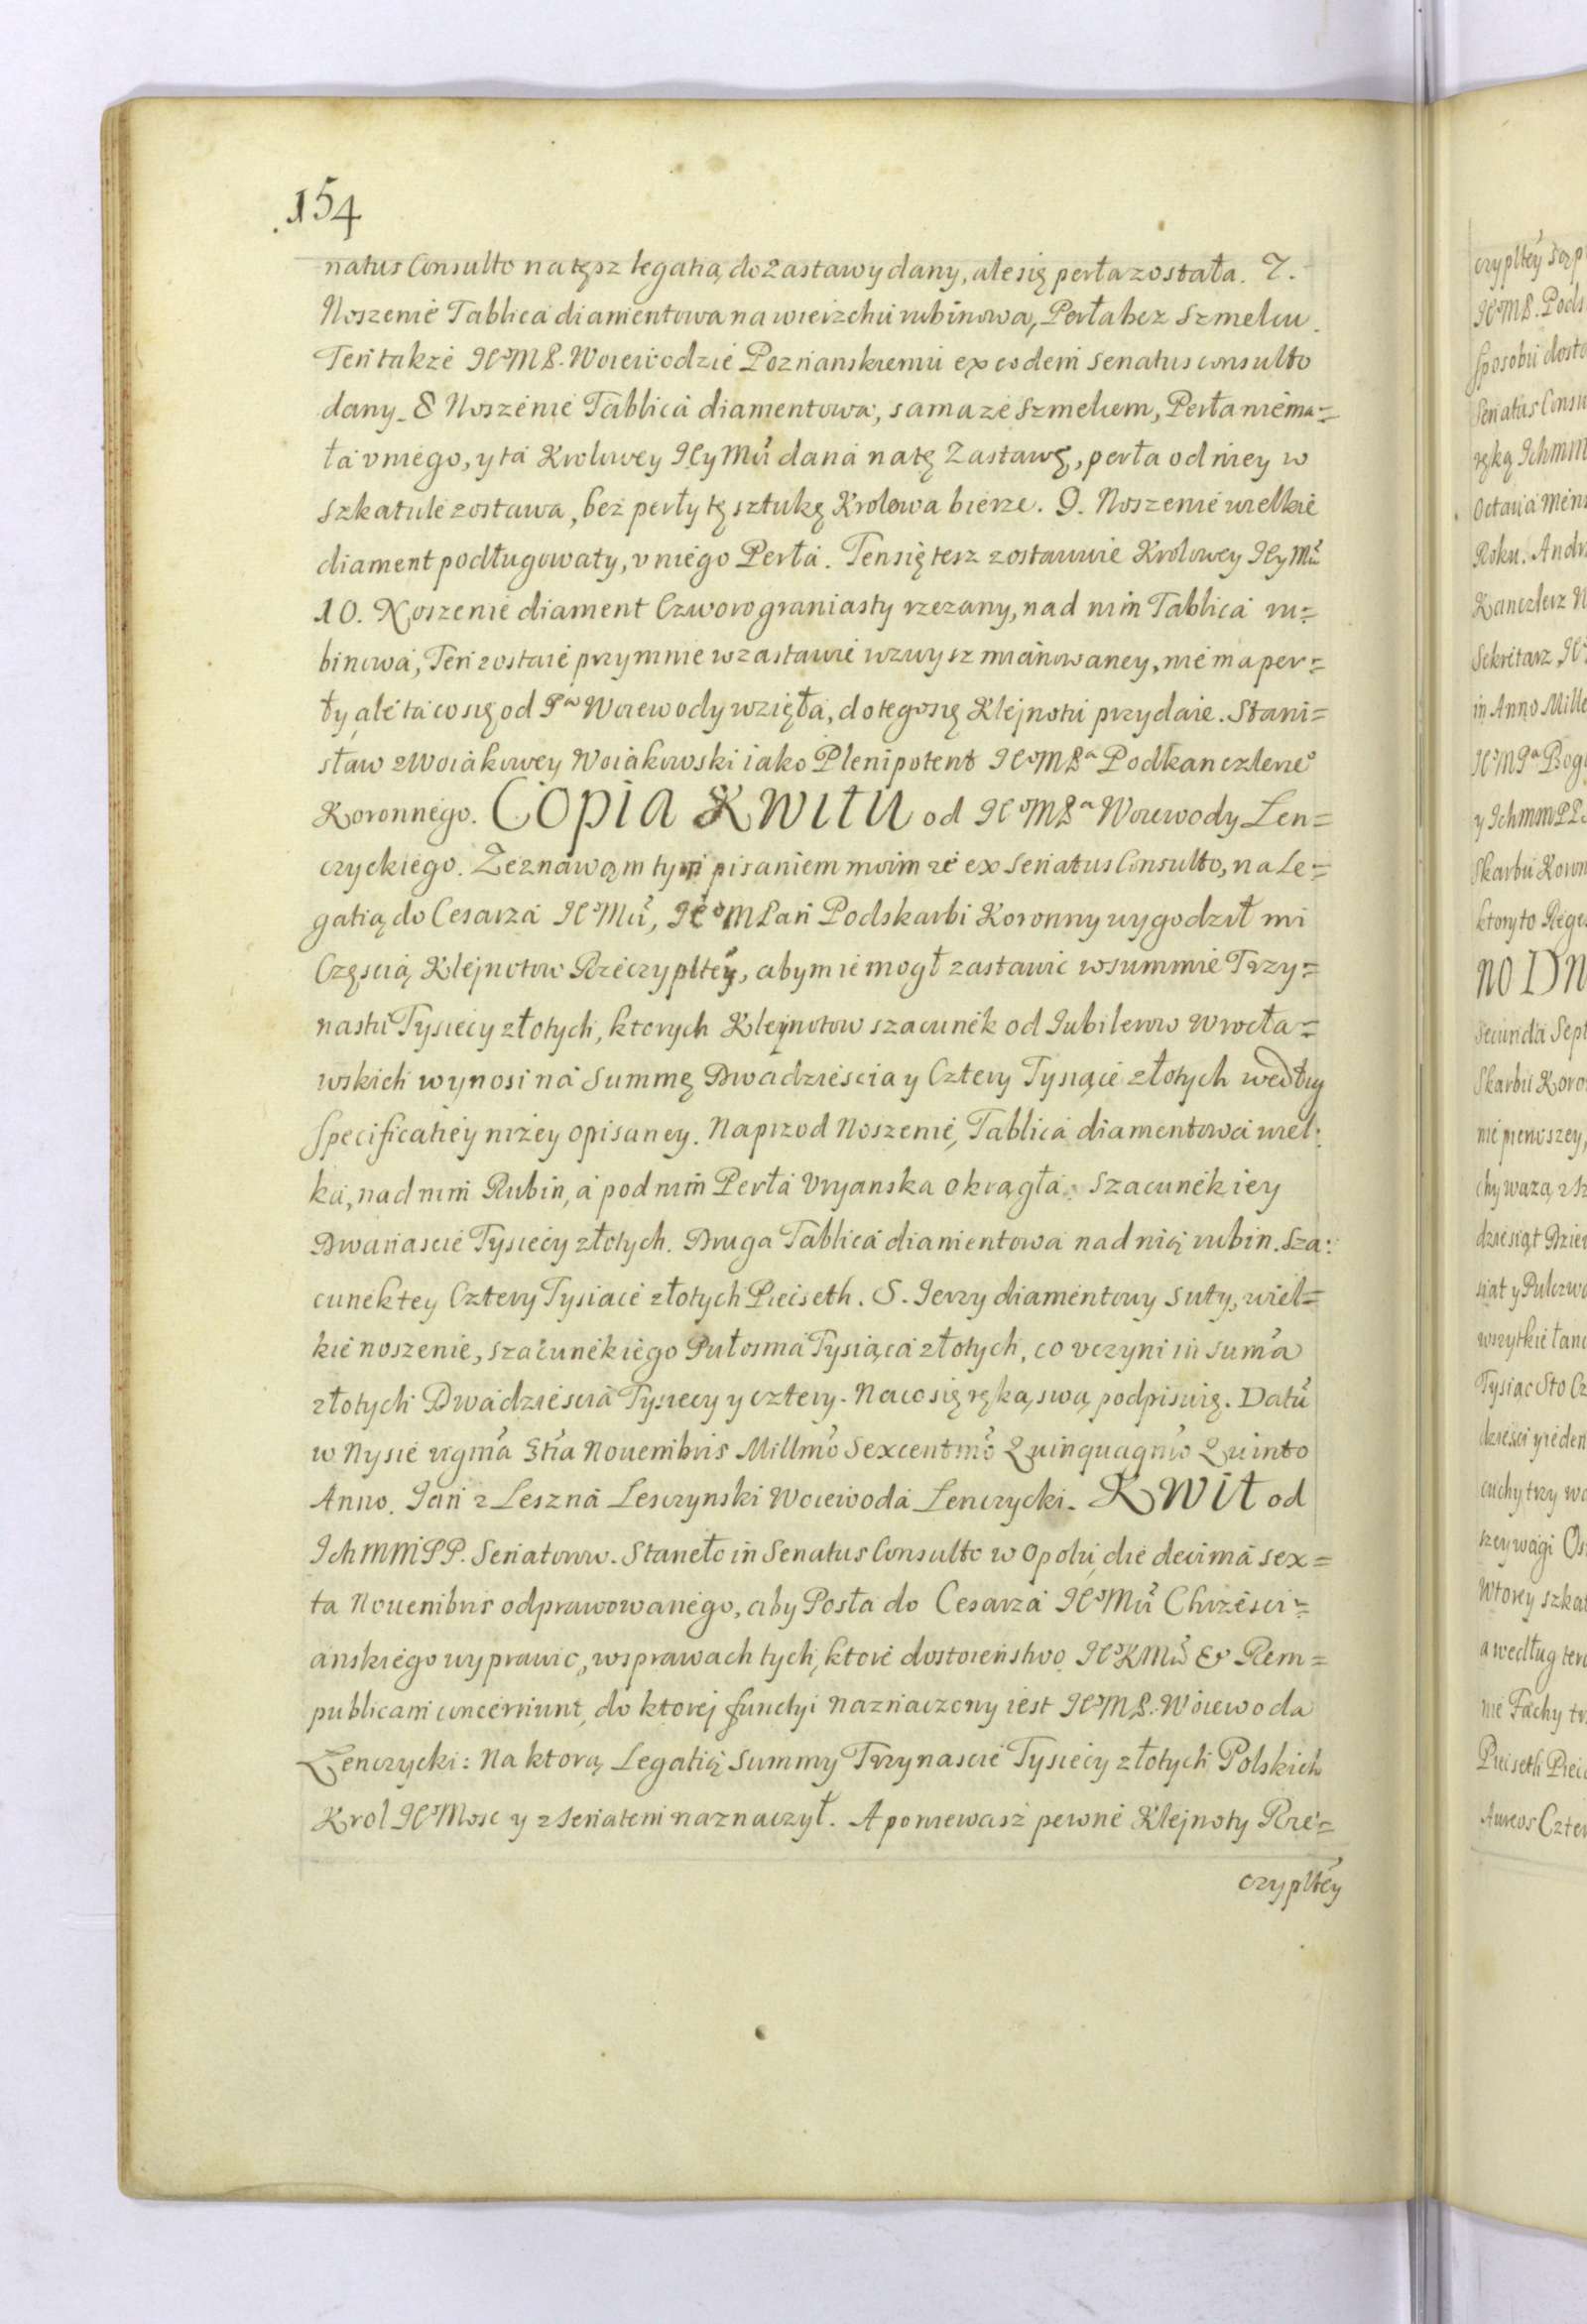 154
natus Consulto na tęsz legatią do Zastawy dany, ale się perła została. 7.
Noszenie Tablica diamentowa na wierzchu rubinowa, Perła bez Szmelcu.
Ten takze JeoMP. Woiewodzie Poznanskiemu ex eodem Senatus consulto
dany. 8 Noszenie Tablica diamentowa, sama ze Szmelcem, Perła niema=
ła v niego, y ta Krolowey Jey Mci dana na tę Zastawę, perła od niey w
szkatule zostawa, bez perły tę sztukę Krolowa bierze. 9. Noszenie wielkie
diament podługowaty, v niego Perła. Ten się tesz zostawuie Krolowey Jey Mci
10. Noszenie diament Czworograniasty rzezany, nad nim Tablica ru=
binowa, Ten zostaie przy mnie w zastawie wzwysz mianowaney, nie ma per=
ły ale ta co się od Pa Woiewody wzięła, do tego się Klejnotu przydaie. Stani=
sław z Woiakowey Woiakowski iako Plenipotent JeoMPa Podkanczlerzeo
Koronnego. Copia Kwitu od JeoMPa Woiewody Len=
czyckiego. Zeznawąm tym pisaniem moim ze ex Senatus Consulto, na Le=
gatią do Cesarza JeoMci, JeoMPan Podskarbi Koronny wygodził mi
Częscią Klejnotow Rzeczyplтеy, abym ie mogł zastawic w summie Trzy=
nastu Tysiecy złotych, ktorych Klejnotow szacunek od Jubilerow Wrocła=
wskich wynosi na Summę Dwadziescia y Cztery Tysiące złotych według
specificatiey nizey opisaney. Naprzod Noszenie, Tablica diamentowa wiel:
ka, nad nim Rubin, a pod nim Perła Vryanska okrągła. Szacunek iey
Dwanascie Tysiecy złotych. Druga Tablica diamentowa nad nią rubin. Sza:
cunek tey Cztery Tysiące złotych Pieciseth. S. Jerzy diamentowy suty, wiel=
kie noszenie, szacunek iego Pułosma Tysiąca złotych, co vczyni in suma
złotych Dwadziescia Tysiecy y cztery. Na co się ręką swą podpisuię. Datu
w Nysie vigma 3tia Nouembris Millmo Sexcentmo Quinquagmo Quinto
Anno. Jan z Leszna Lesczynski Woiewoda Lenczycki. Kwit od
JchmmPP. Senatorow. Staneło in Senatus Consulto w Opolu die decima sex=
ta Nouembris odprawowanego, aby Posła do Cesarza JeoMci Chrzesci=
anskiego wyprawic, w sprawach tych, ktore dostoienstwo JeoKMci & Rem=
publicam concernunt, do ktorej functyi naznaczony iest JeoMP. Woiewoda
Lenczycki: Na ktorą Legatią Summy Trzynascie Tysiecy złotych Polskich
Krol JeoMosc y z Senatem naznaczył. A poniewasz pewne Klejnoty Rze=
czypltey